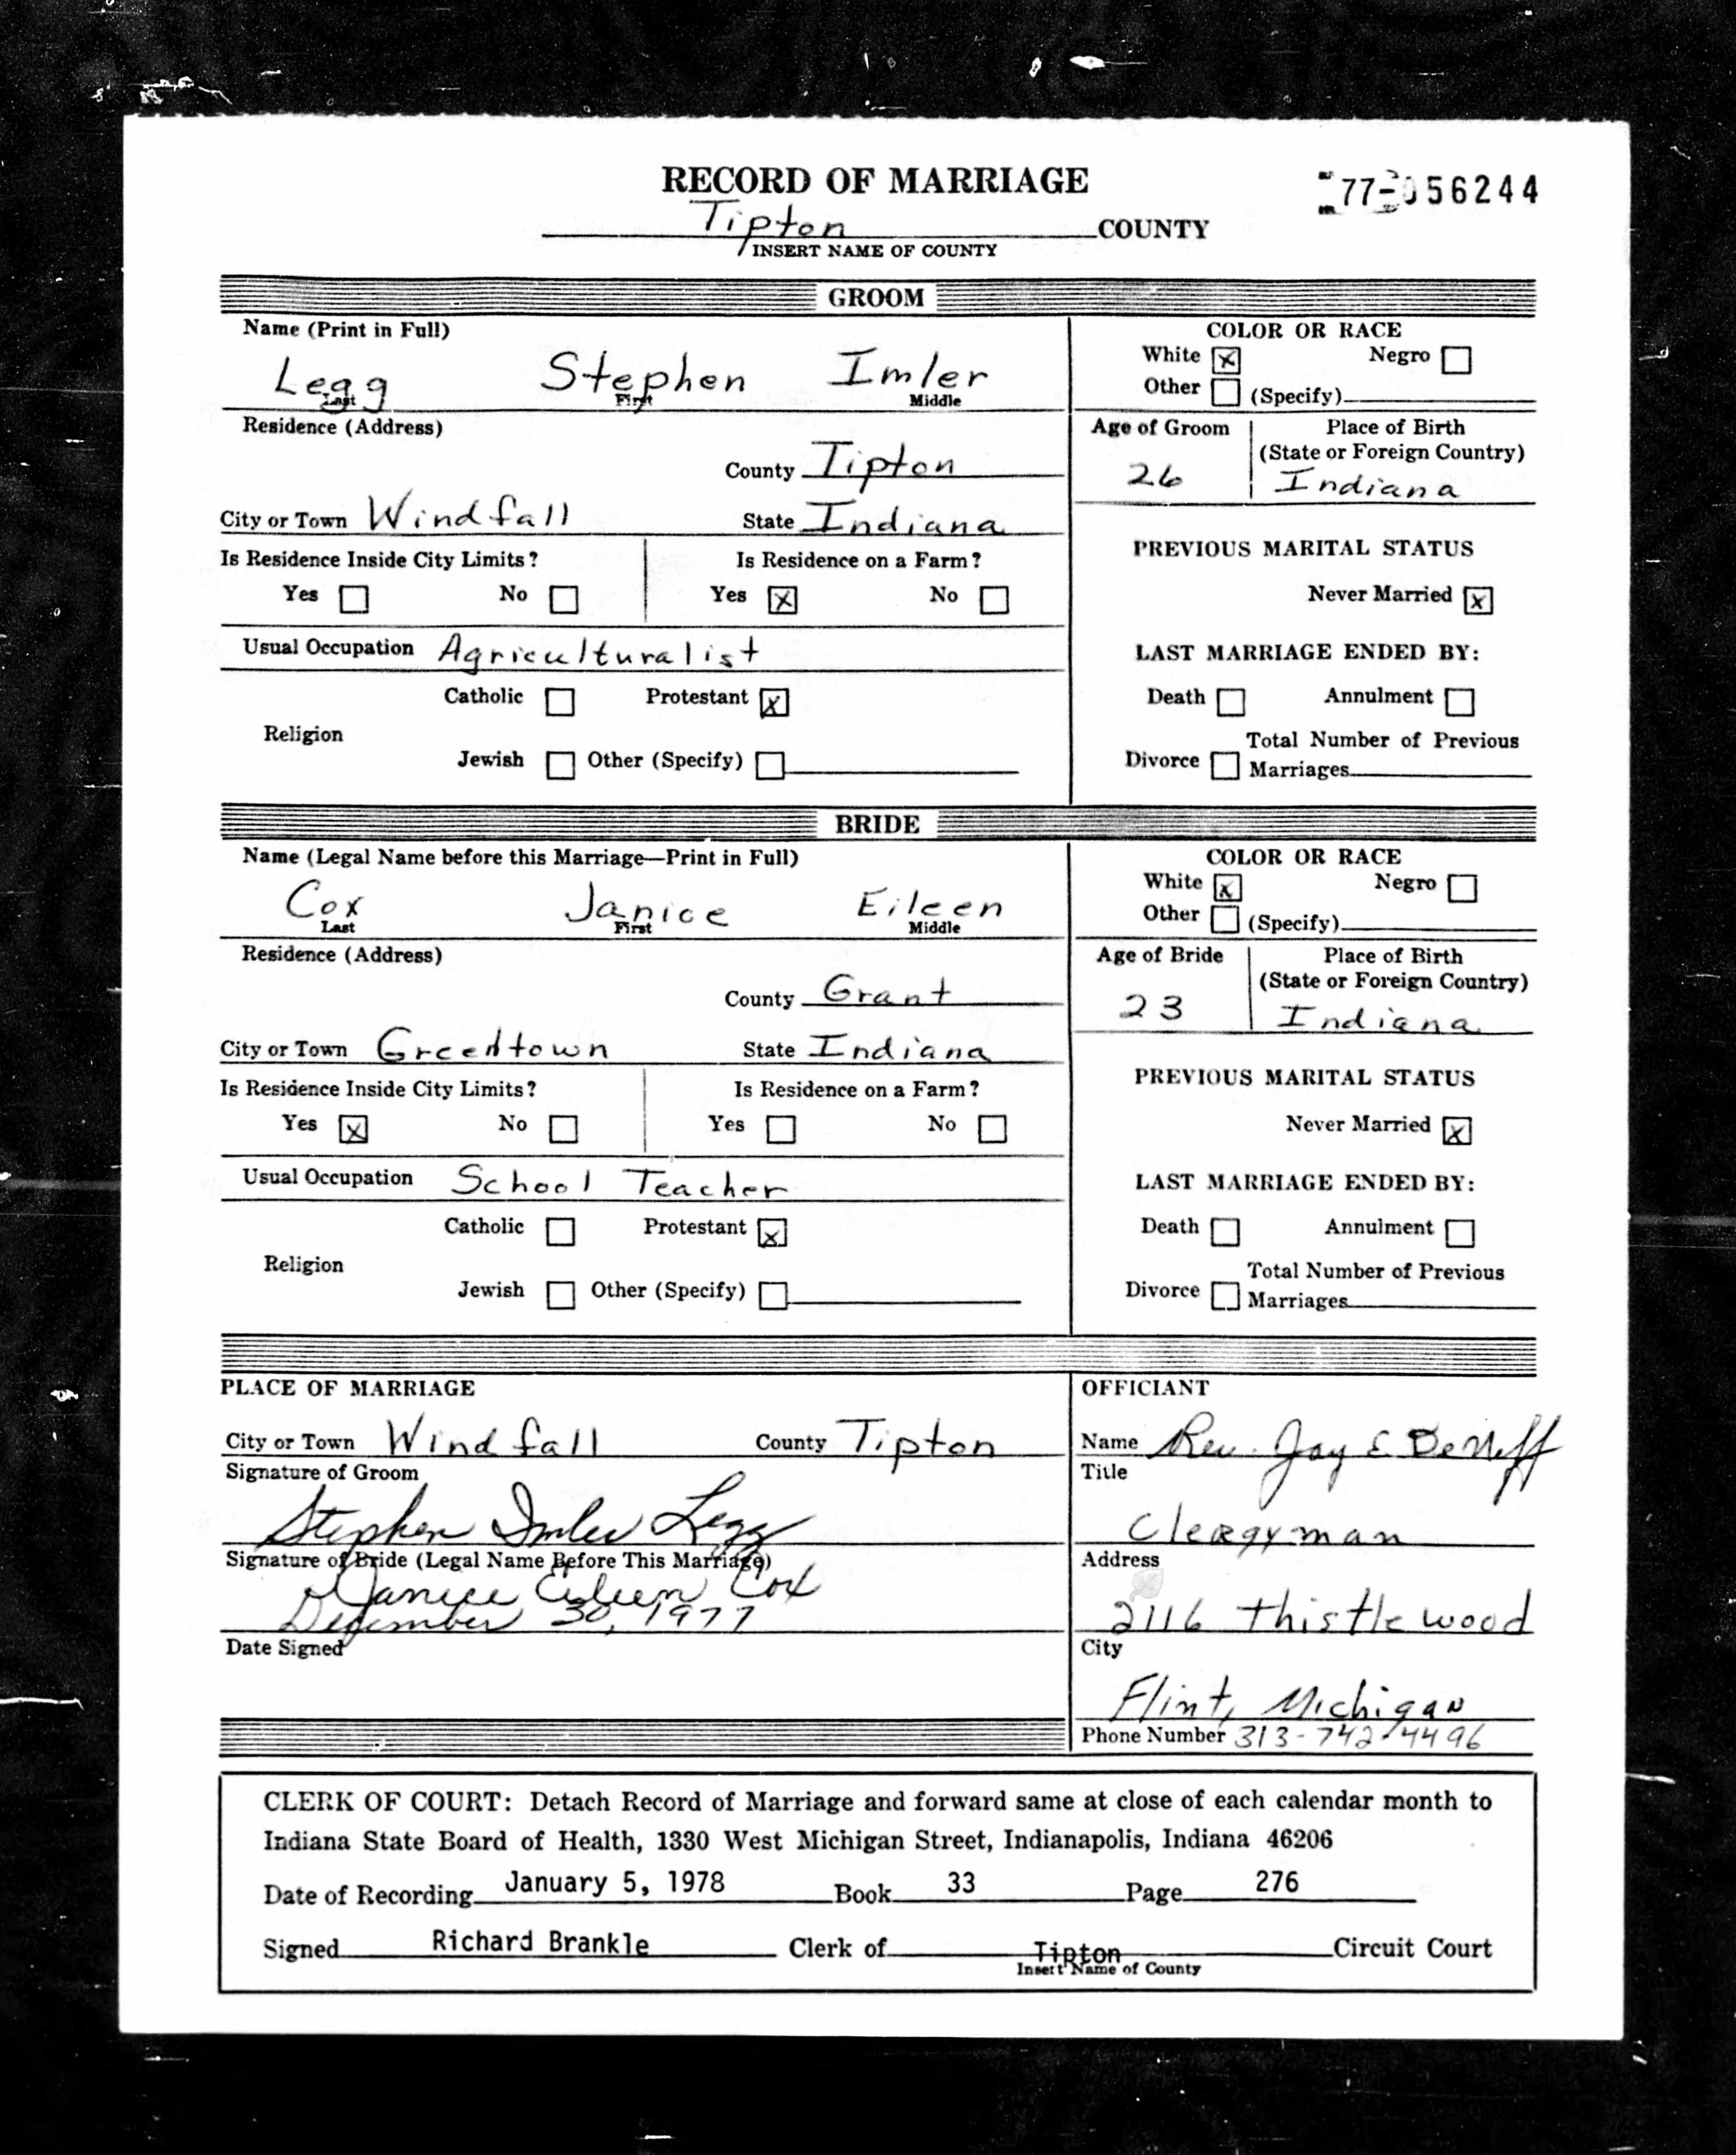 RECORD OF MARRIAGE
77-056244
Tipton COUNTY
INSERT NAME OF COUNTY
GROOM
Name (Print in Full)
Legg Stephen Imler
Last First Middle
COLOR OR RACE
White [x] Negro [ ]
Other [ ] (Specify)
Residence (Address)
County Tipton
City or Town Windfall State Indiana
Age of Groom
26
Place of Birth
(State or Foreign Country)
Indiana
Is Residence Inside City Limits?
Yes [ ] No [ ]
Is Residence on a Farm?
Yes [x] No [ ]
PREVIOUS MARITAL STATUS
Never Married [x]
Usual Occupation Agriculturalist
LAST MARRIAGE ENDED BY:
Death [ ] Annulment [ ]
Divorce [ ] Total Number of Previous
Marriages
Catholic [ ] Protestant [x]
Religion
Jewish [ ] Other (Specify) [ ]
BRIDE
Name (Legal Name before this Marriage—Print in Full)
Cox Janice Eileen
Last First Middle
COLOR OR RACE
White [x] Negro [ ]
Other [ ] (Specify)
Residence (Address)
County Grant
City or Town Greentown State Indiana
Age of Bride
23
Place of Birth
(State or Foreign Country)
Indiana
Is Residence Inside City Limits?
Yes [x] No [ ]
Is Residence on a Farm?
Yes [ ] No [ ]
PREVIOUS MARITAL STATUS
Never Married [x]
Usual Occupation School Teacher
LAST MARRIAGE ENDED BY:
Death [ ] Annulment [ ]
Divorce [ ] Total Number of Previous
Marriages
Catholic [ ] Protestant [x]
Religion
Jewish [ ] Other (Specify) [ ]
PLACE OF MARRIAGE
City or Town Windfall County Tipton
Signature of Groom
Stephen Imler Legg
Signature of Bride (Legal Name Before This Marriage)
Janice Eileen Cox
December 30, 1977
Date Signed
OFFICIANT
Name Rev. Jay E. DeNeff
Title
Clergyman
Address
2116 Thistlewood
City
Flint, Michigan
Phone Number 313-742-4496
CLERK OF COURT: Detach Record of Marriage and forward same at close of each calendar month to
Indiana State Board of Health, 1330 West Michigan Street, Indianapolis, Indiana 46206
Date of Recording January 5, 1978 Book 33 Page 276
Signed Richard Brankle Clerk of Tipton Circuit Court
Insert Name of County